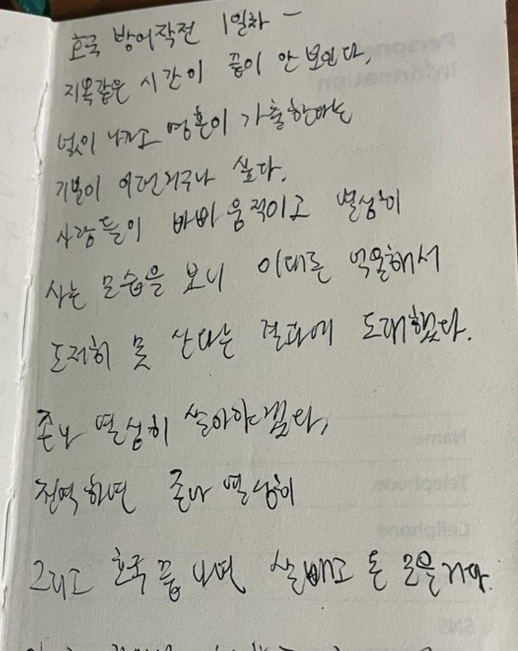 호국 방어작전 1일차 -
지옥같은 시간이 끝이 안 보인다,
넋이 나가고 영혼이 가출한다는
기분이 이런거구나 싶다.
사람들이 바삐 움직이고 열심히
사는 모습을 보니 이대론 억울해서
도저히 못 산다는 결과에 도래했다.
존나 열심히 살아야겠다,
전역하면 존나 열심히
그리고 호국 끝나면 살빼고 돈 모을거다.